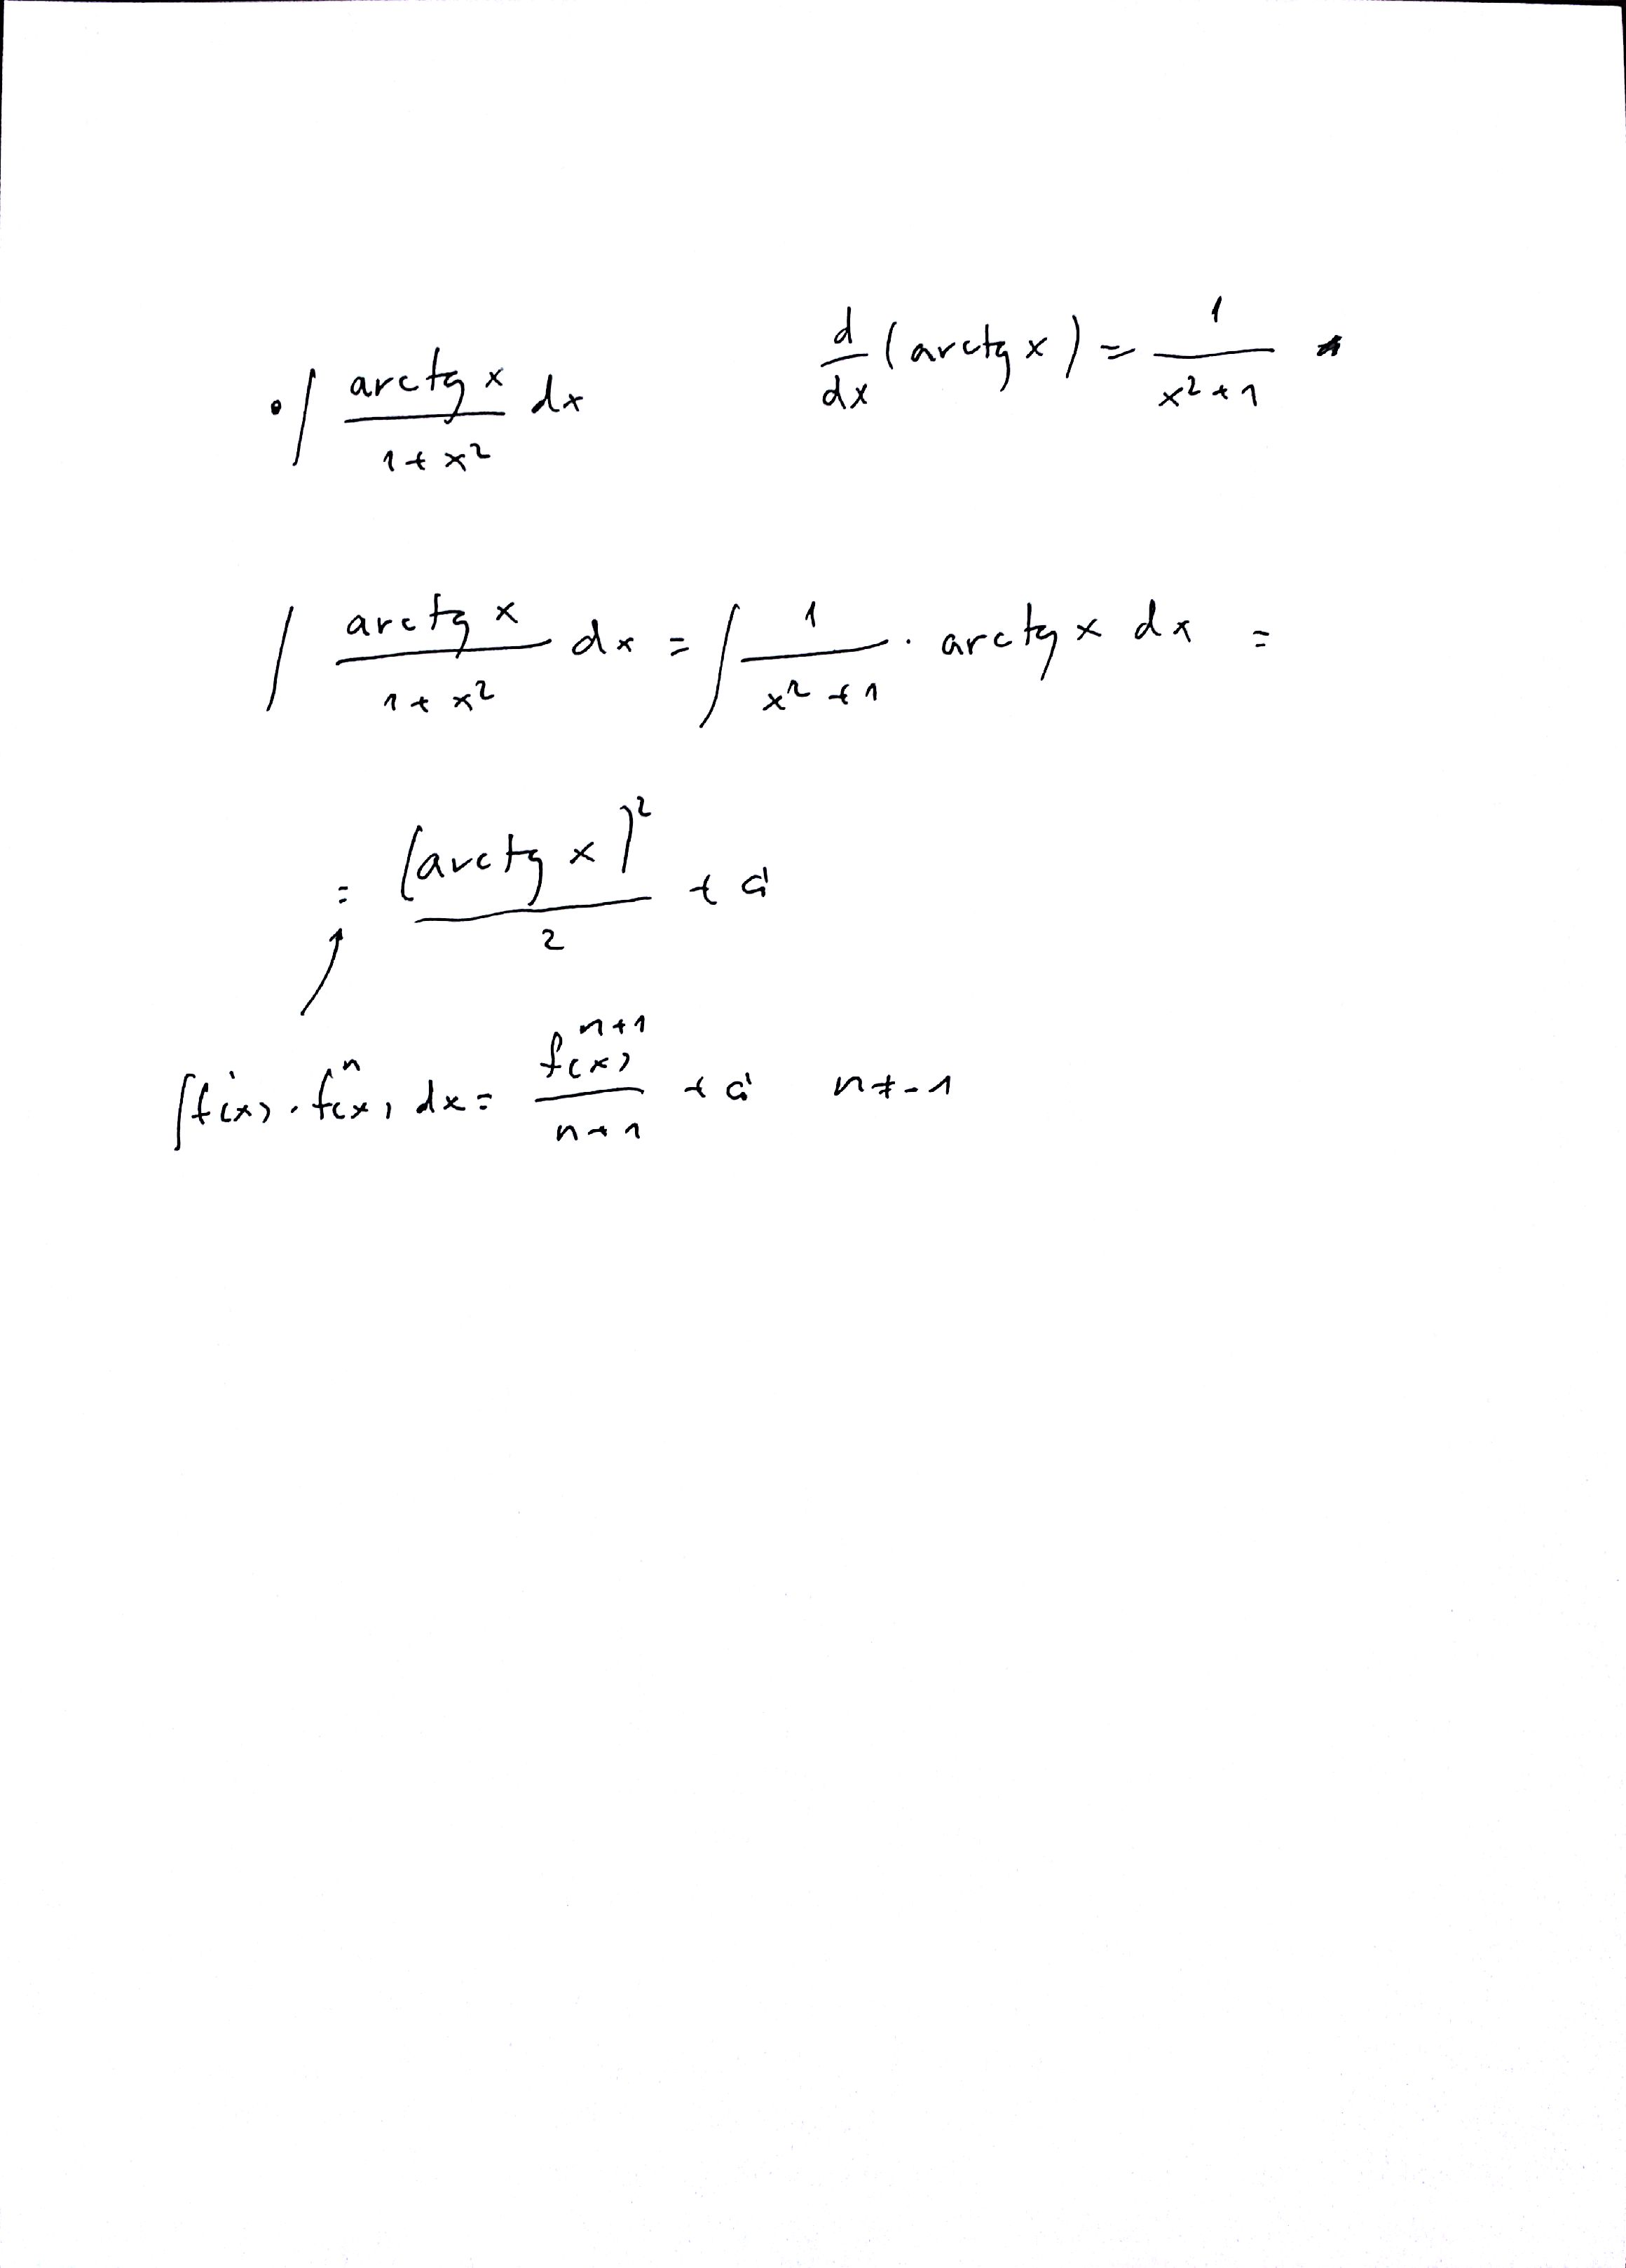 • ∫ arctg x / (1 + x²) dx    d/dx (arctg x) = 1 / (x² + 1)
∫ arctg x / (1 + x²) dx = ∫ 1 / (x² + 1) · arctg x dx =
= (arctg x)² / 2 + C
∫ f'(x) · fⁿ(x) dx = f(x)ⁿ⁺¹ / (n + 1) + C    n ≠ -1